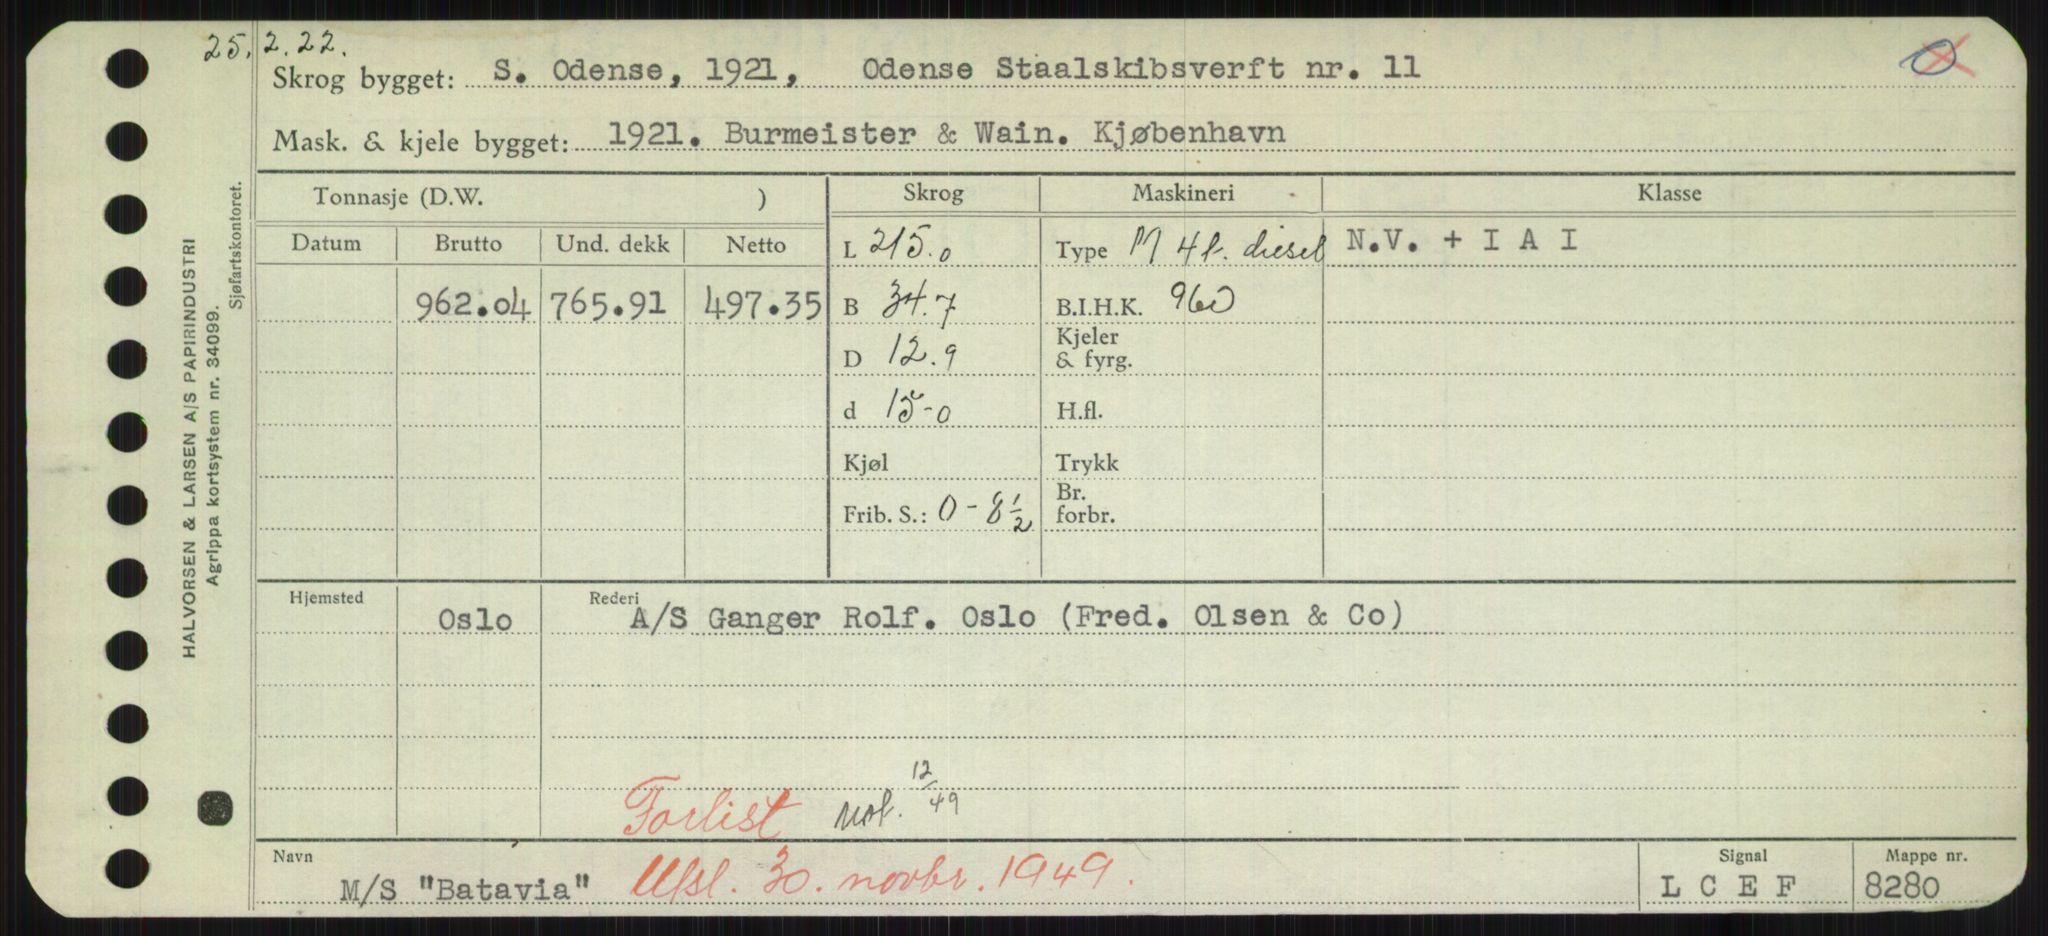 25. 2. 22.
Skrog bygget: S. Odense, 1921, Odense Staalskibsverft nr. 11
O
Mask. & kjele bygget: 1921. Burmeister & Wain. Kjøbenhavn
Tonnasje (D.W. ) Skrog Maskineri Klasse
Datum Brutto Und. dekk Netto L 215.0 Type M 4t. diesel N.V. + I A I
962.04 765.91 497.35 B 34.7 B.I.H.K. 960
D 12.9 Kjeler & fyrg.
d 15-0 H.fl.
Kjøl Trykk
Frib. S.: 0-8½ Br. forbr.
Hjemsted Oslo Rederi A/S Ganger Rolf. Oslo (Fred. Olsen & Co)
Forlist not. 12/49
Navn M/S "Batavia" Utsl. 30. novbr. 1949.
Signal L C E F
Mappe nr. 8280
HALVORSEN & LARSEN A/S PAPIRINDUSTRI
Agrippa kortsystem nr. 34099.
Sjøfartskontoret.